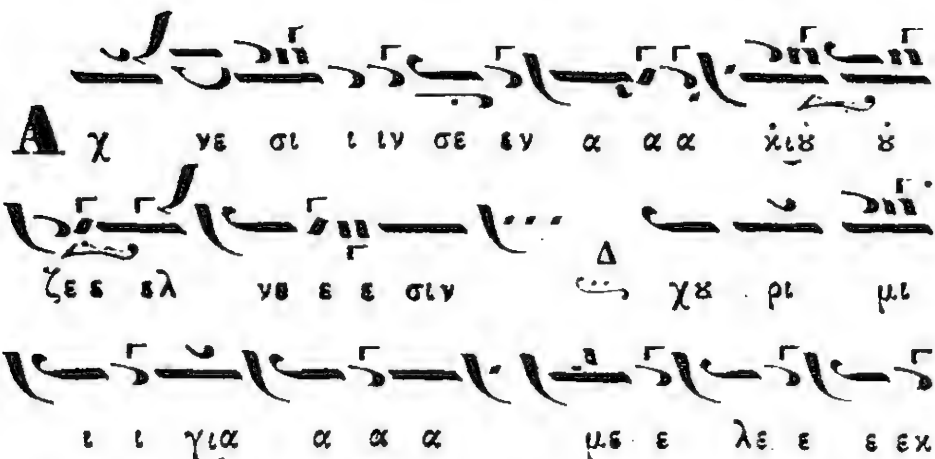 Αχ νε σι ι ιν σε εν α α α κ̇ιȣ̇ ȣ̇
ζε ε ελ νε ε ε σιν Δ χȣ ρι μι
ι ι για α α α με ε λε ε ε εκ